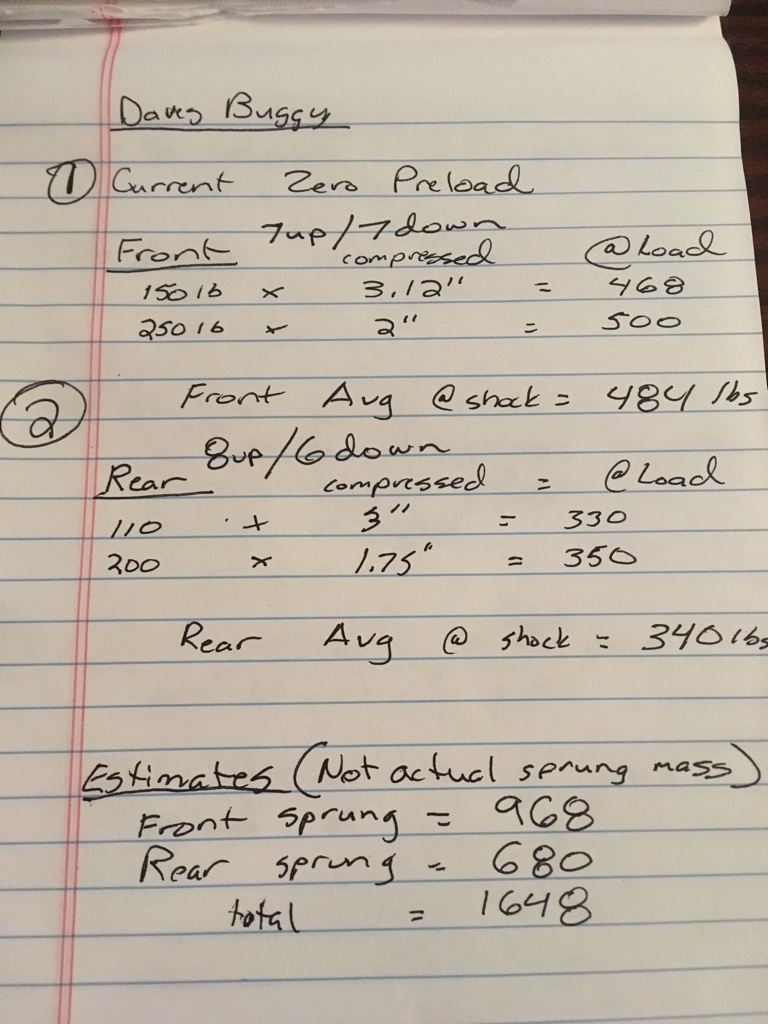 Daves Buggy
① Current Zero Preload
7up/7down
Front compressed @Load
150 lb x 3.12" = 468
250 lb x 2" = 500
② Front Avg @ shock = 484 lbs
8up/6down
Rear compressed = @Load
110 x 3" = 330
200 x 1.75" = 350
Rear Avg @ shock = 340 lbs
Estimates (Not actual sprung mass)
Front sprung = 968
Rear sprung = 680
total = 1648